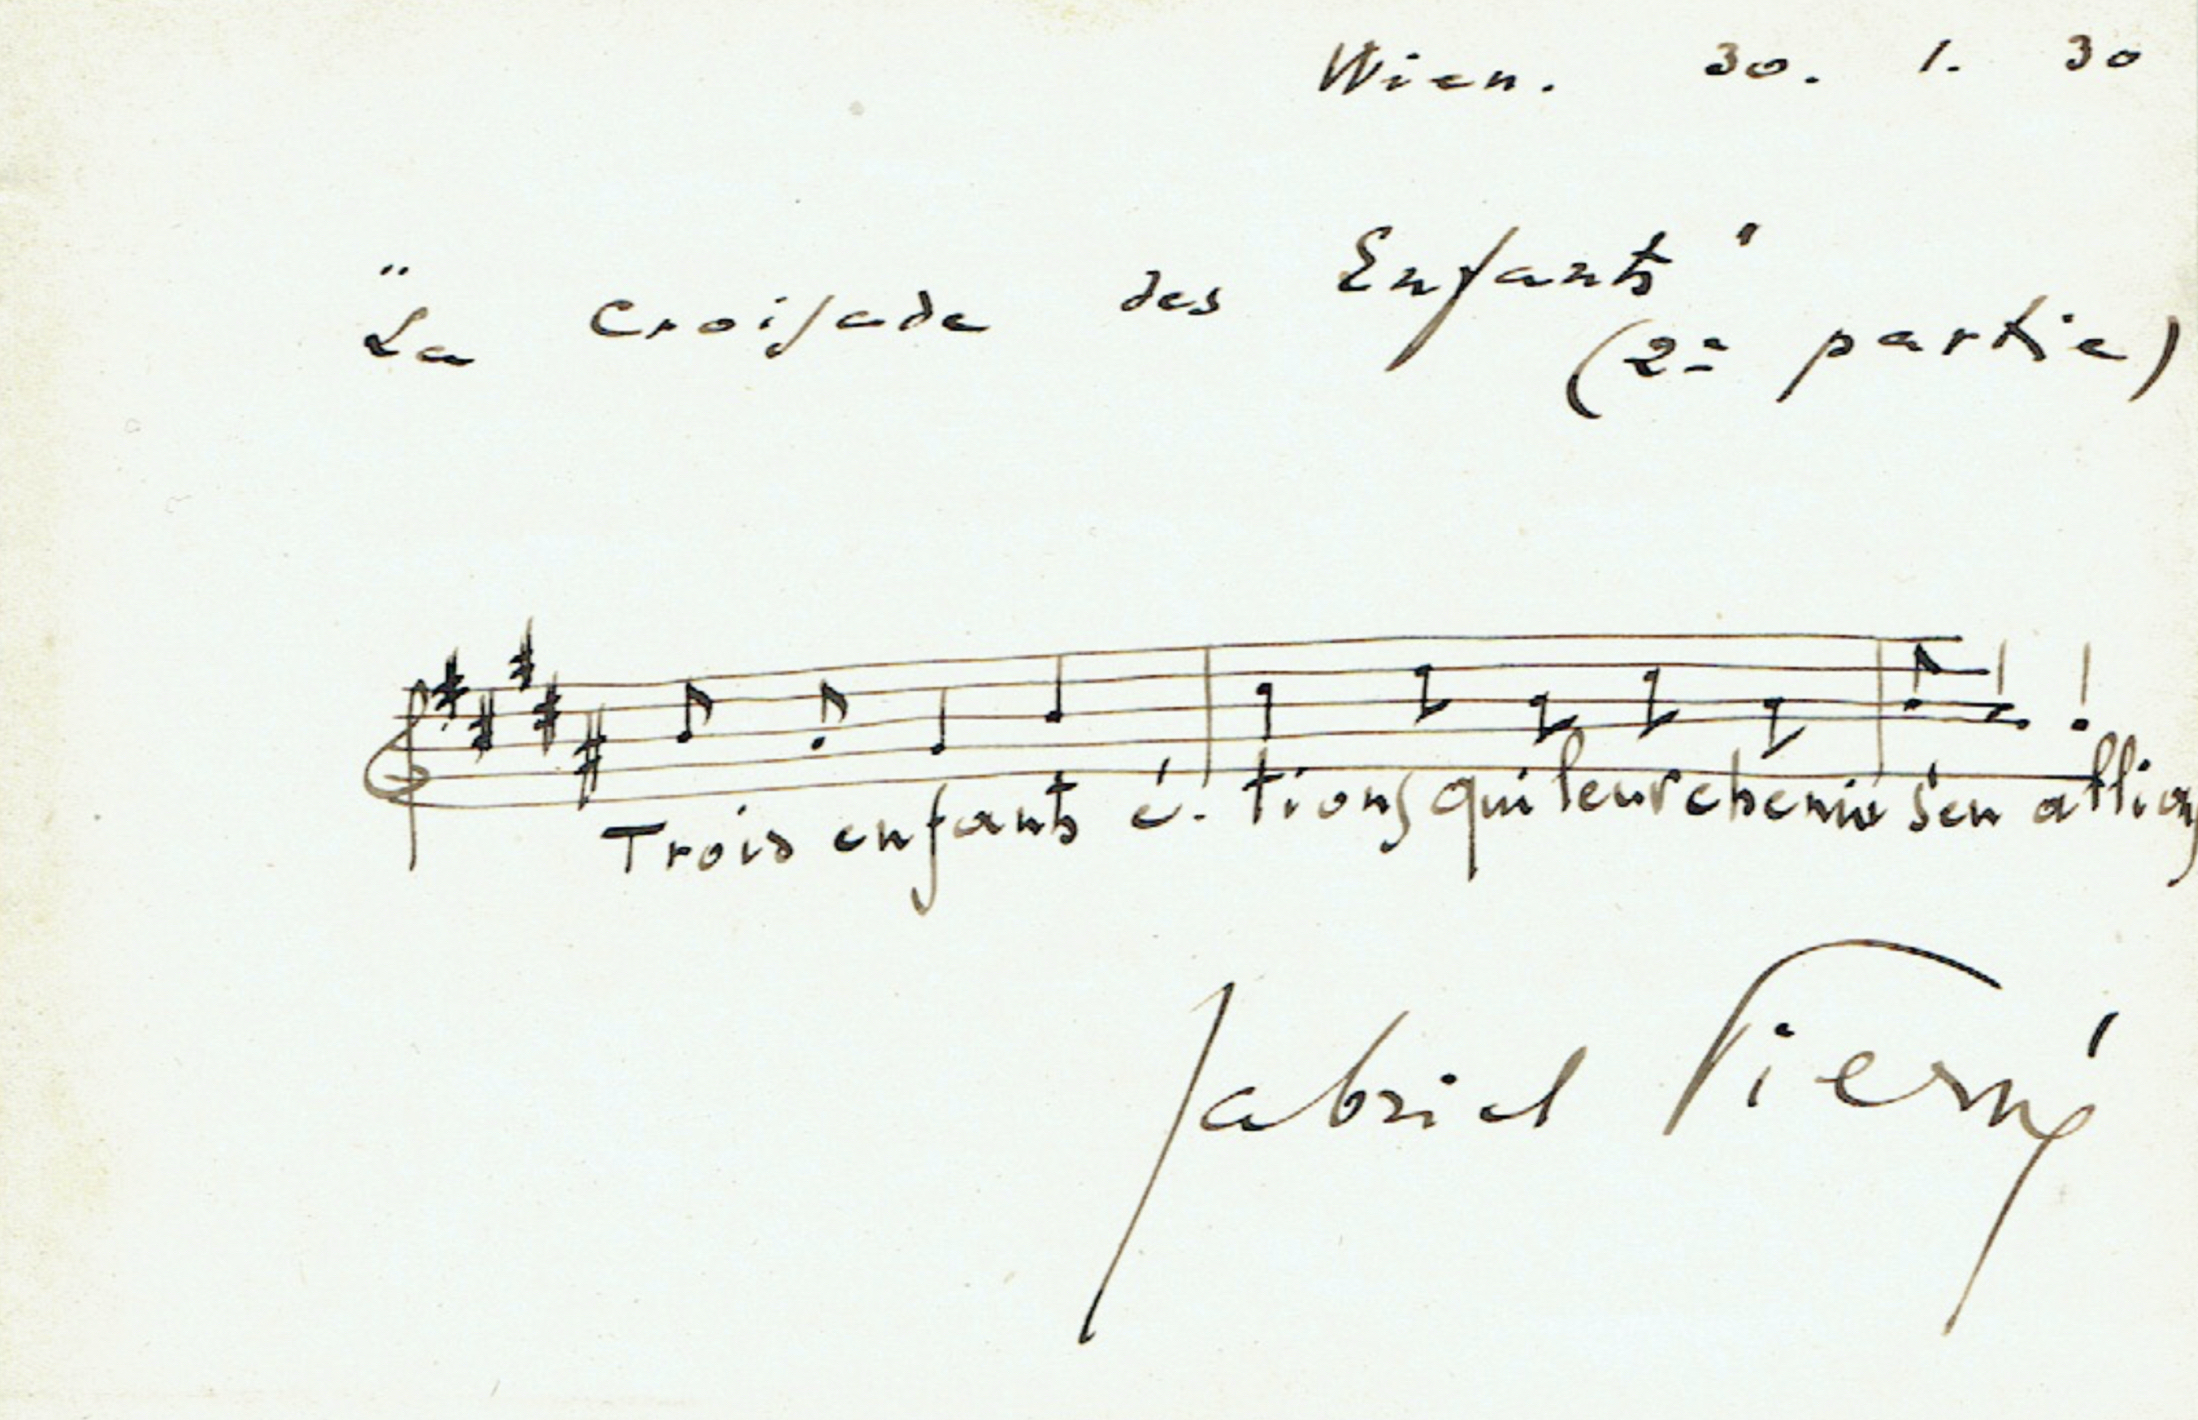 Wien. 30. 1. 30
"La Croisade des Enfants"
(2e partie)
Trois enfants é-tions qui leur chemin s'en allions
Gabriel Pierné